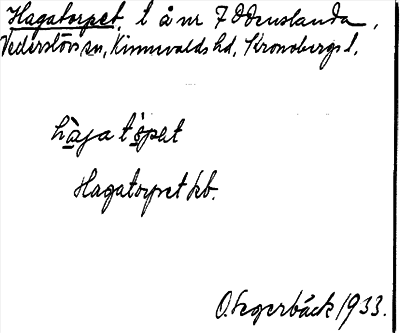 Hagatorpet, l å nr 7 Odenslanda,
Vederslövs sn, Kinnevalds hd, Kronobergs l.
hàga tòpet
Hagatorpet kb.
O. Segerbäck 1933.